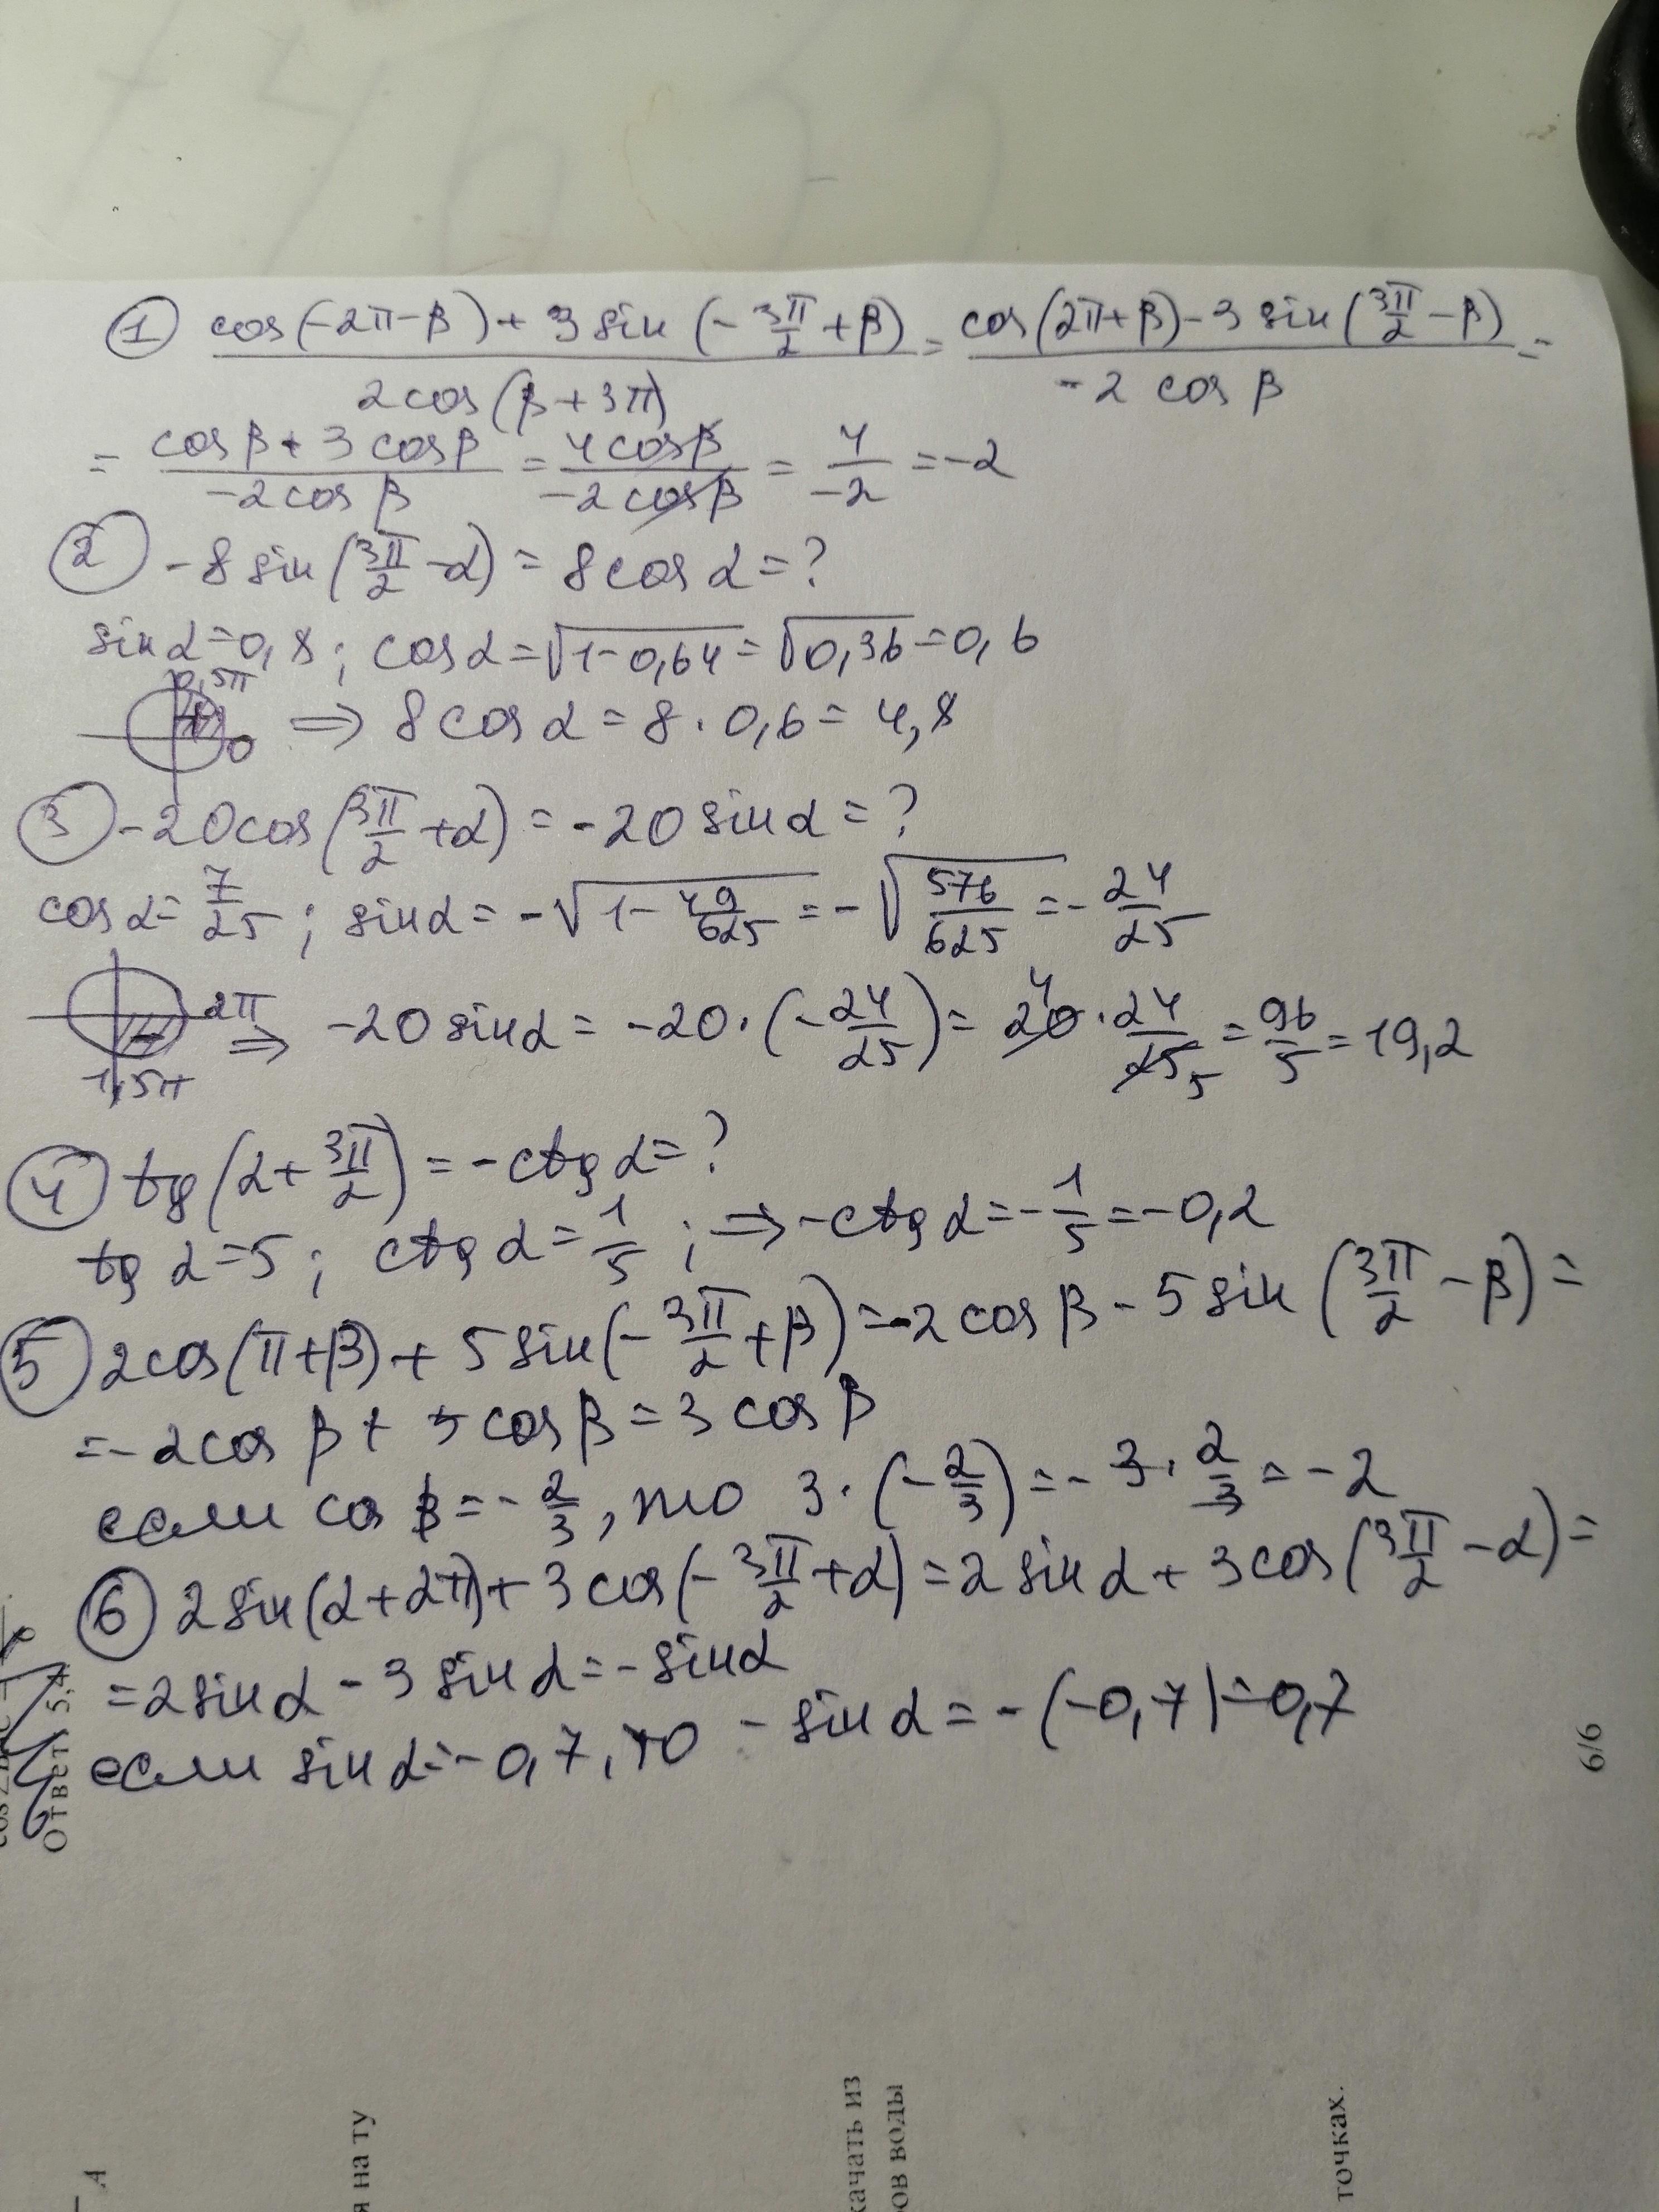 ① (cos(-2π-β)+3sin(-3π/2+β))/(2cos(β+3π)) = (cos(2π+β)-3sin(3π/2-β))/(-2cosβ) =
= (cosβ+3cosβ)/(-2cosβ) = (4cosβ)/(-2cosβ) = 4/(-2) = -2
② -8sin(3π/2-α) = 8cosα = ?
sinα=0,8; cosα=√(1-0,64)=√(0,36)=0,6
0,5π
+
0
⇒ 8cosα = 8·0,6 = 4,8
③ -20cos(3π/2+α) = -20sinα = ?
cosα=7/25; sinα = -√(1-49/625) = -√(576/625) = -24/25
2π
1,5π
⇒ -20sinα = -20·(-24/25) = 20 4·24/25 5 = 96/5 = 19,2
④ tg(α+3π/2) = -ctgα = ?
tgα=5; ctgα=1/5; ⇒ -ctgα=-1/5=-0,2
⑤ 2cos(π+β)+5sin(-3π/2+β)=-2cosβ-5sin(3π/2-β)=
=-2cosβ+5cosβ=3cosβ
если cosβ=-2/3, то 3·(-2/3)=-3·2/3=-2
⑥ 2sin(α+2π)+3cos(-3π/2+α)=2sinα+3cos(3π/2-α)=
=2sinα-3sinα=-sinα
если sinα=-0,7, то -sinα=-(-0,7)=0,7
6/6
Ответ 5,4
А
я на ту
качать из
ров воды
точках.